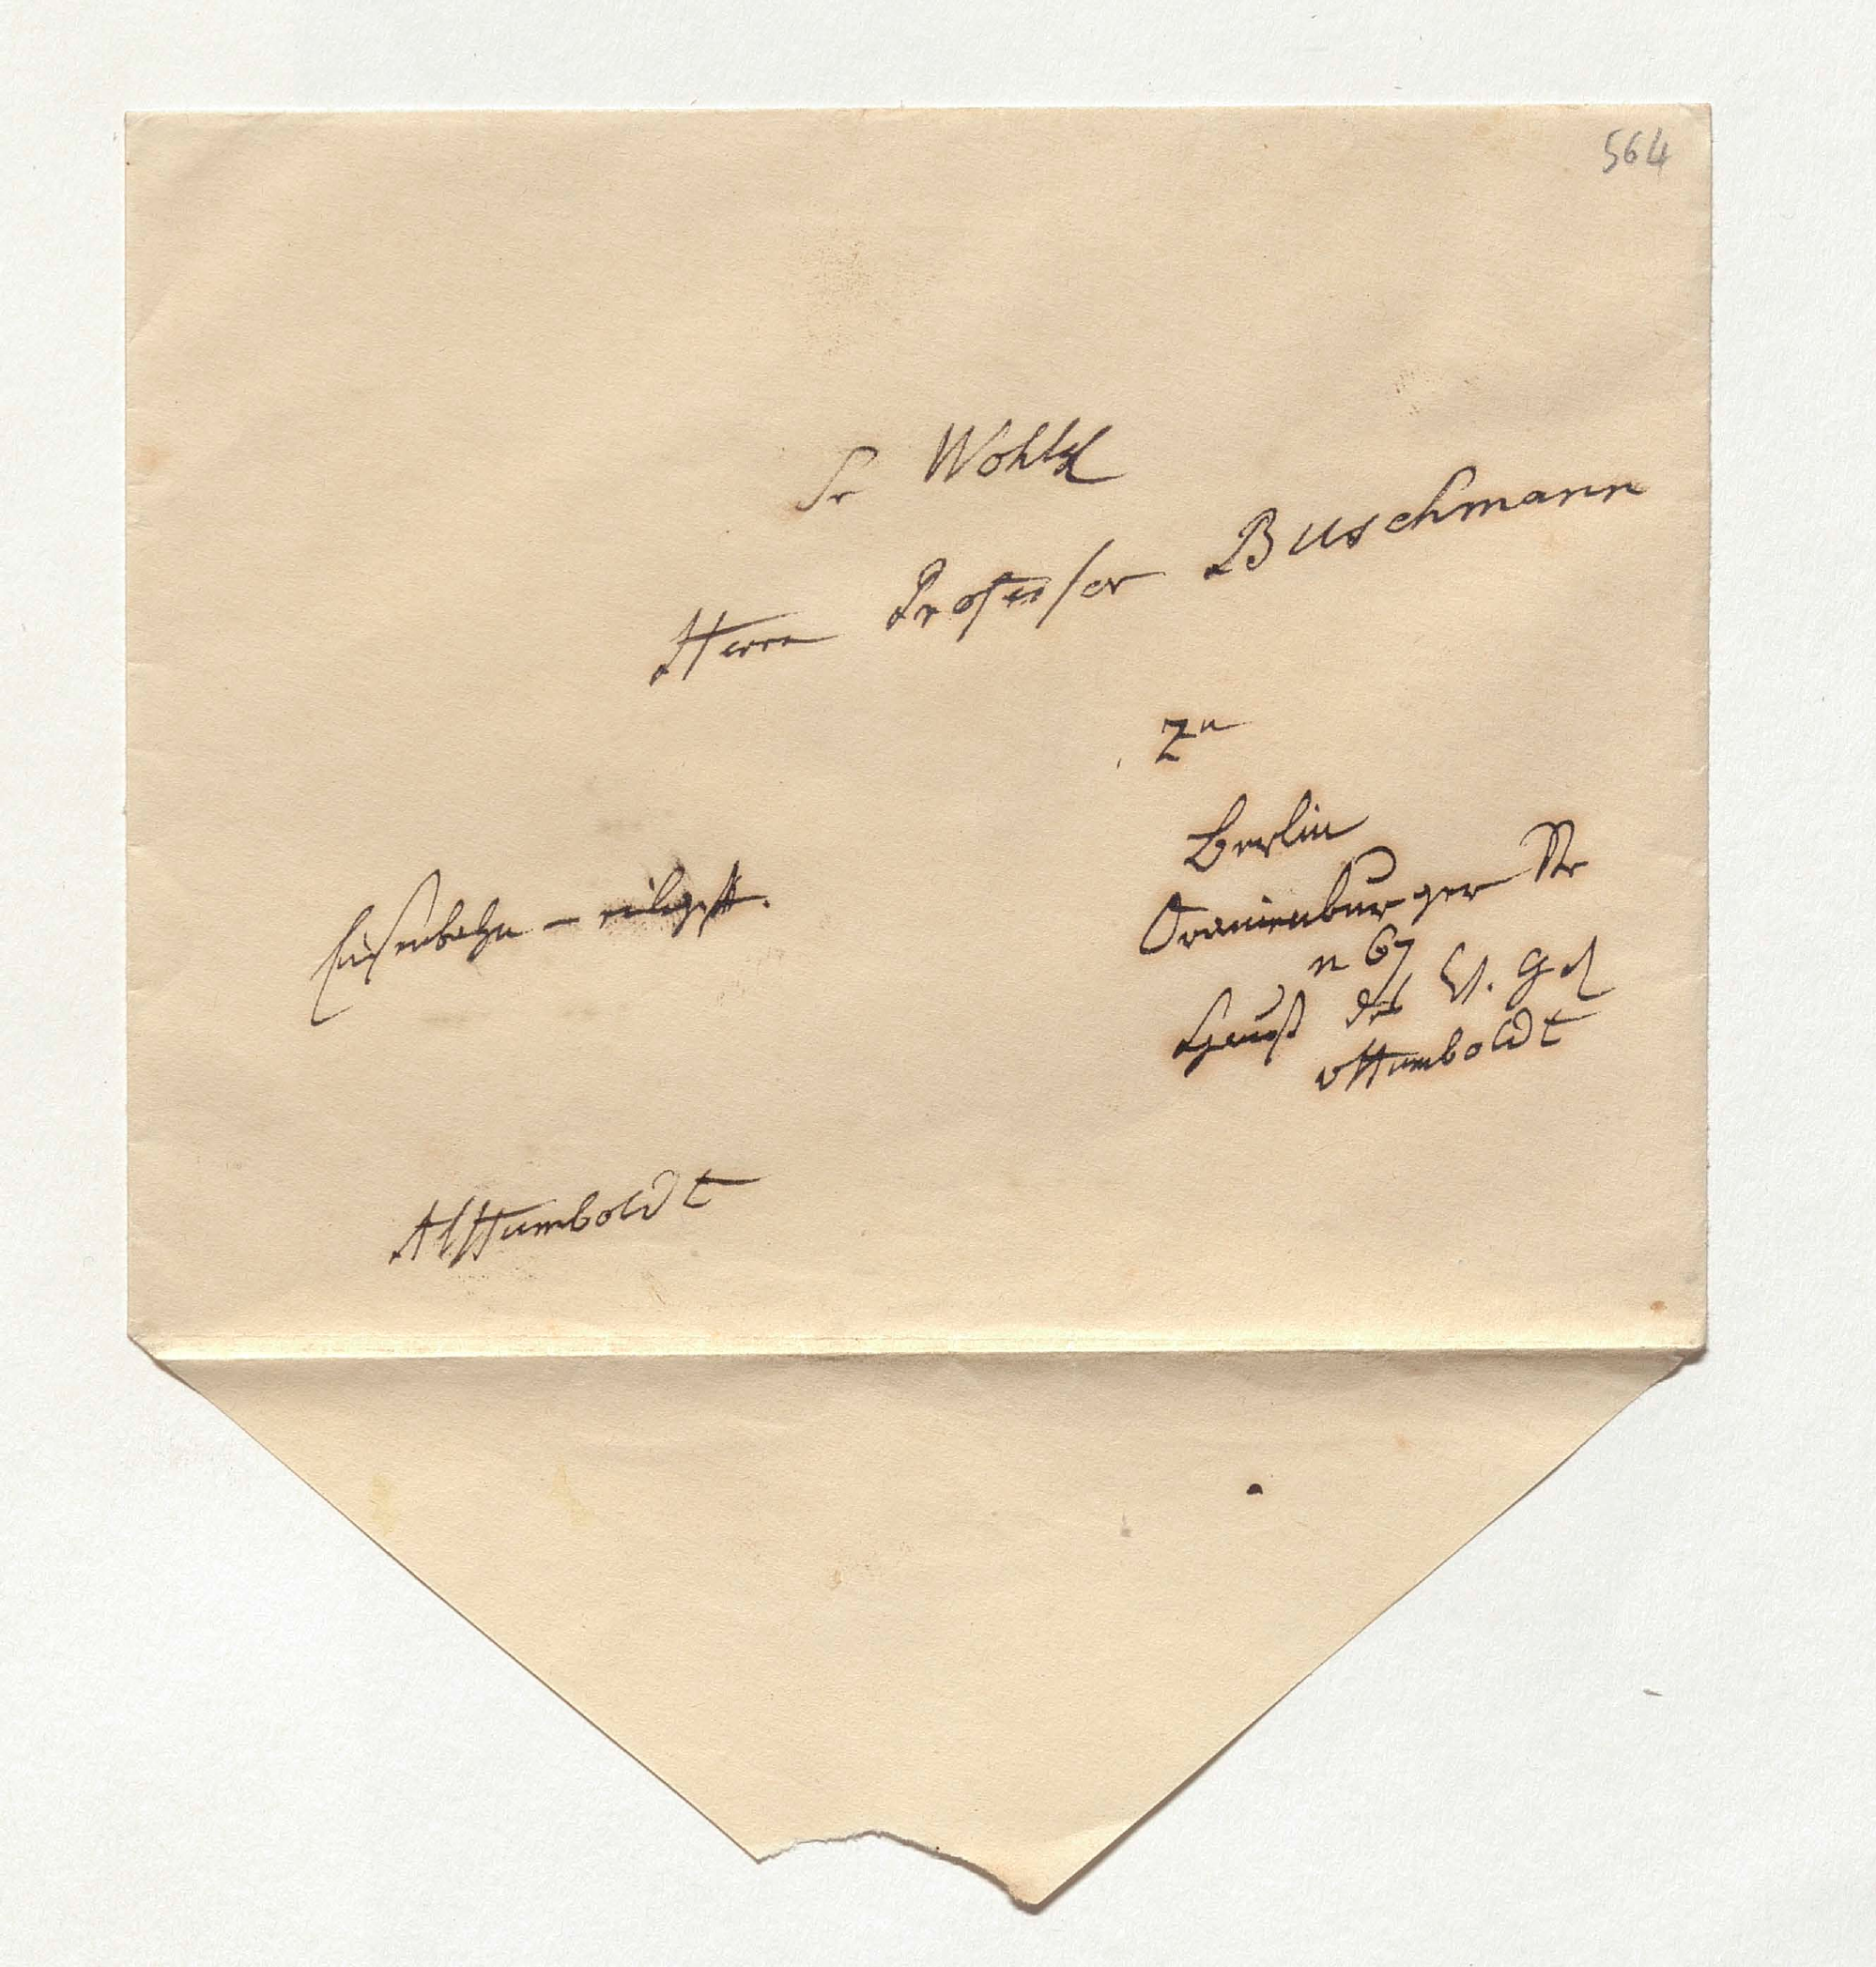 564
Sr Wohlg
Herrn Professor Buschmann
Zu
Berlin
Oranienburger Str
n 67
Hauß des
vHumboldt
Eisenbahn – eiligst.
AlHumboldt